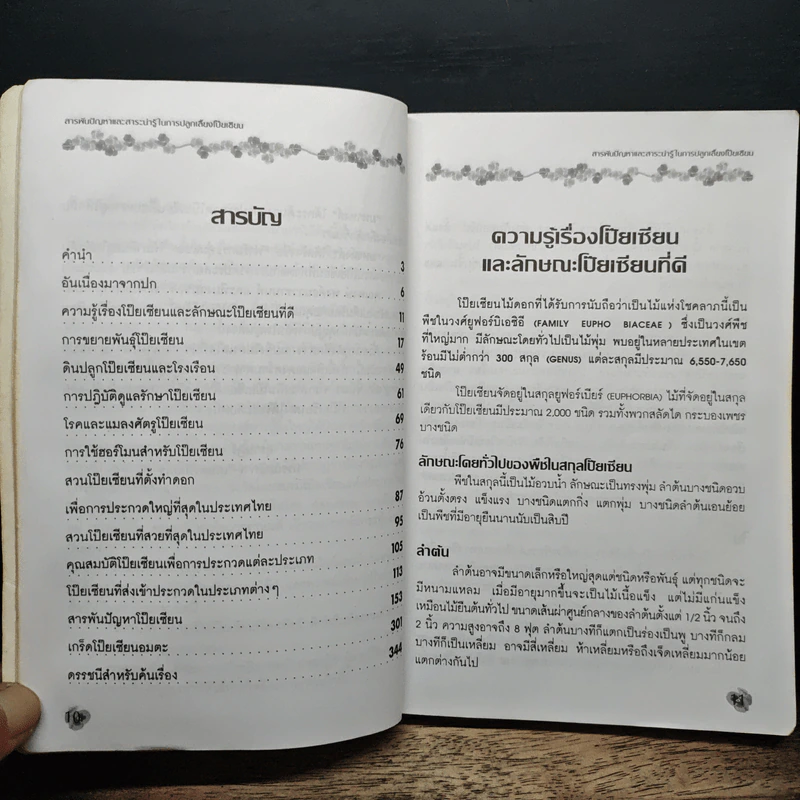 สารพันปัญหาและสาระน่ารู้ในการปลูกเลี้ยงโป๊ยเซียน
สารบัญ
คำนำ 3
อันเนื่องมาจากปก 6
ความรู้เรื่องโป๊ยเซียนและลักษณะโป๊ยเซียนที่ดี 11
การขยายพันธุ์โป๊ยเซียน 17
ดินปลูกโป๊ยเซียนและโรงเรือน 49
การปฏิบัติดูแลรักษาโป๊ยเซียน 61
โรคและแมลงศัตรูโป๊ยเซียน 69
การใช้ฮอร์โมนสำหรับโป๊ยเซียน 76
สวนโป๊ยเซียนที่ตั้งทำดอก
เพื่อการประกวดใหญ่ที่สุดในประเทศไทย 87
สวนโป๊ยเซียนที่สวยที่สุดในประเทศไทย 95
คุณสมบัติโป๊ยเซียนเพื่อการประกวดแต่ละประเภท 105
โป๊ยเซียนที่ส่งเข้าประกวดในประเภทต่างๆ 113
สารพันปัญหาโป๊ยเซียน 153
เกร็ดโป๊ยเซียนอมตะ 301
ดรรชนีสำหรับค้นเรื่อง 344
10
สารพันปัญหาและสาระน่ารู้ในการปลูกเลี้ยงโป๊ยเซียน
ความรู้เรื่องโป๊ยเซียน
และลักษณะโป๊ยเซียนที่ดี
โป๊ยเซียนไม้ดอกที่ได้รับการนับถือว่าเป็นไม้แห่งโชคลาภนี้เป็น
พืชในวงศ์ยูฟอร์บิเอซิอี (FAMILY EUPHO BIACEAE ) ซึ่งเป็นวงศ์พืช
ที่ใหญ่มาก มีลักษณะโดยทั่วไปเป็นไม้พุ่ม พบอยู่ในหลายประเทศในเขต
ร้อนมีไม่ต่ำกว่า 300 สกุล (GENUS) แต่ละสกุลมีประมาณ 6,550-7,650
ชนิด
โป๊ยเซียนจัดอยู่ในสกุลยูฟอร์เบียร์ (EUPHORBIA) ไม้ที่จัดอยู่ในสกุล
เดียวกับโป๊ยเซียนมีประมาณ 2,000 ชนิด รวมทั้งพวกสลัดได กระบองเพชร
บางชนิด
ลักษณะโดยทั่วไปของพืชในสกุลโป๊ยเซียน
พืชในสกุลนี้เป็นไม้อวบน้ำ ลักษณะเป็นทรงพุ่ม ลำต้นบางชนิดอวบ
อ้วนตั้งตรง แข็งแรง บางชนิดแตกกิ่ง แตกพุ่ม บางชนิดลำต้นเอนย้อย
เป็นพืชที่มีอายุยืนนานนับเป็นสิบปี
ลำต้น
ลำต้นอาจมีขนาดเล็กหรือใหญ่สุดแต่ชนิดหรือพันธุ์ แต่ทุกชนิดจะ
มีหนามแหลม เมื่อมีอายุมากขึ้นจะเป็นไม้เนื้อแข็ง แต่ไม่มีแก่นแข็ง
เหมือนไม้ยืนต้นทั่วไป ขนาดเส้นผ่าศูนย์กลางของลำต้นตั้งแต่ 1/2 นิ้ว จนถึง
2 นิ้ว ความสูงอาจถึง 8 ฟุต ลำต้นบางทีก็แตกเป็นร่องเป็นพู บางทีก็กลม
บางทีก็เป็นเหลี่ยม อาจมีสี่เหลี่ยม ห้าเหลี่ยมหรือถึงเจ็ดเหลี่ยมมากน้อย
แตกต่างกันไป
11